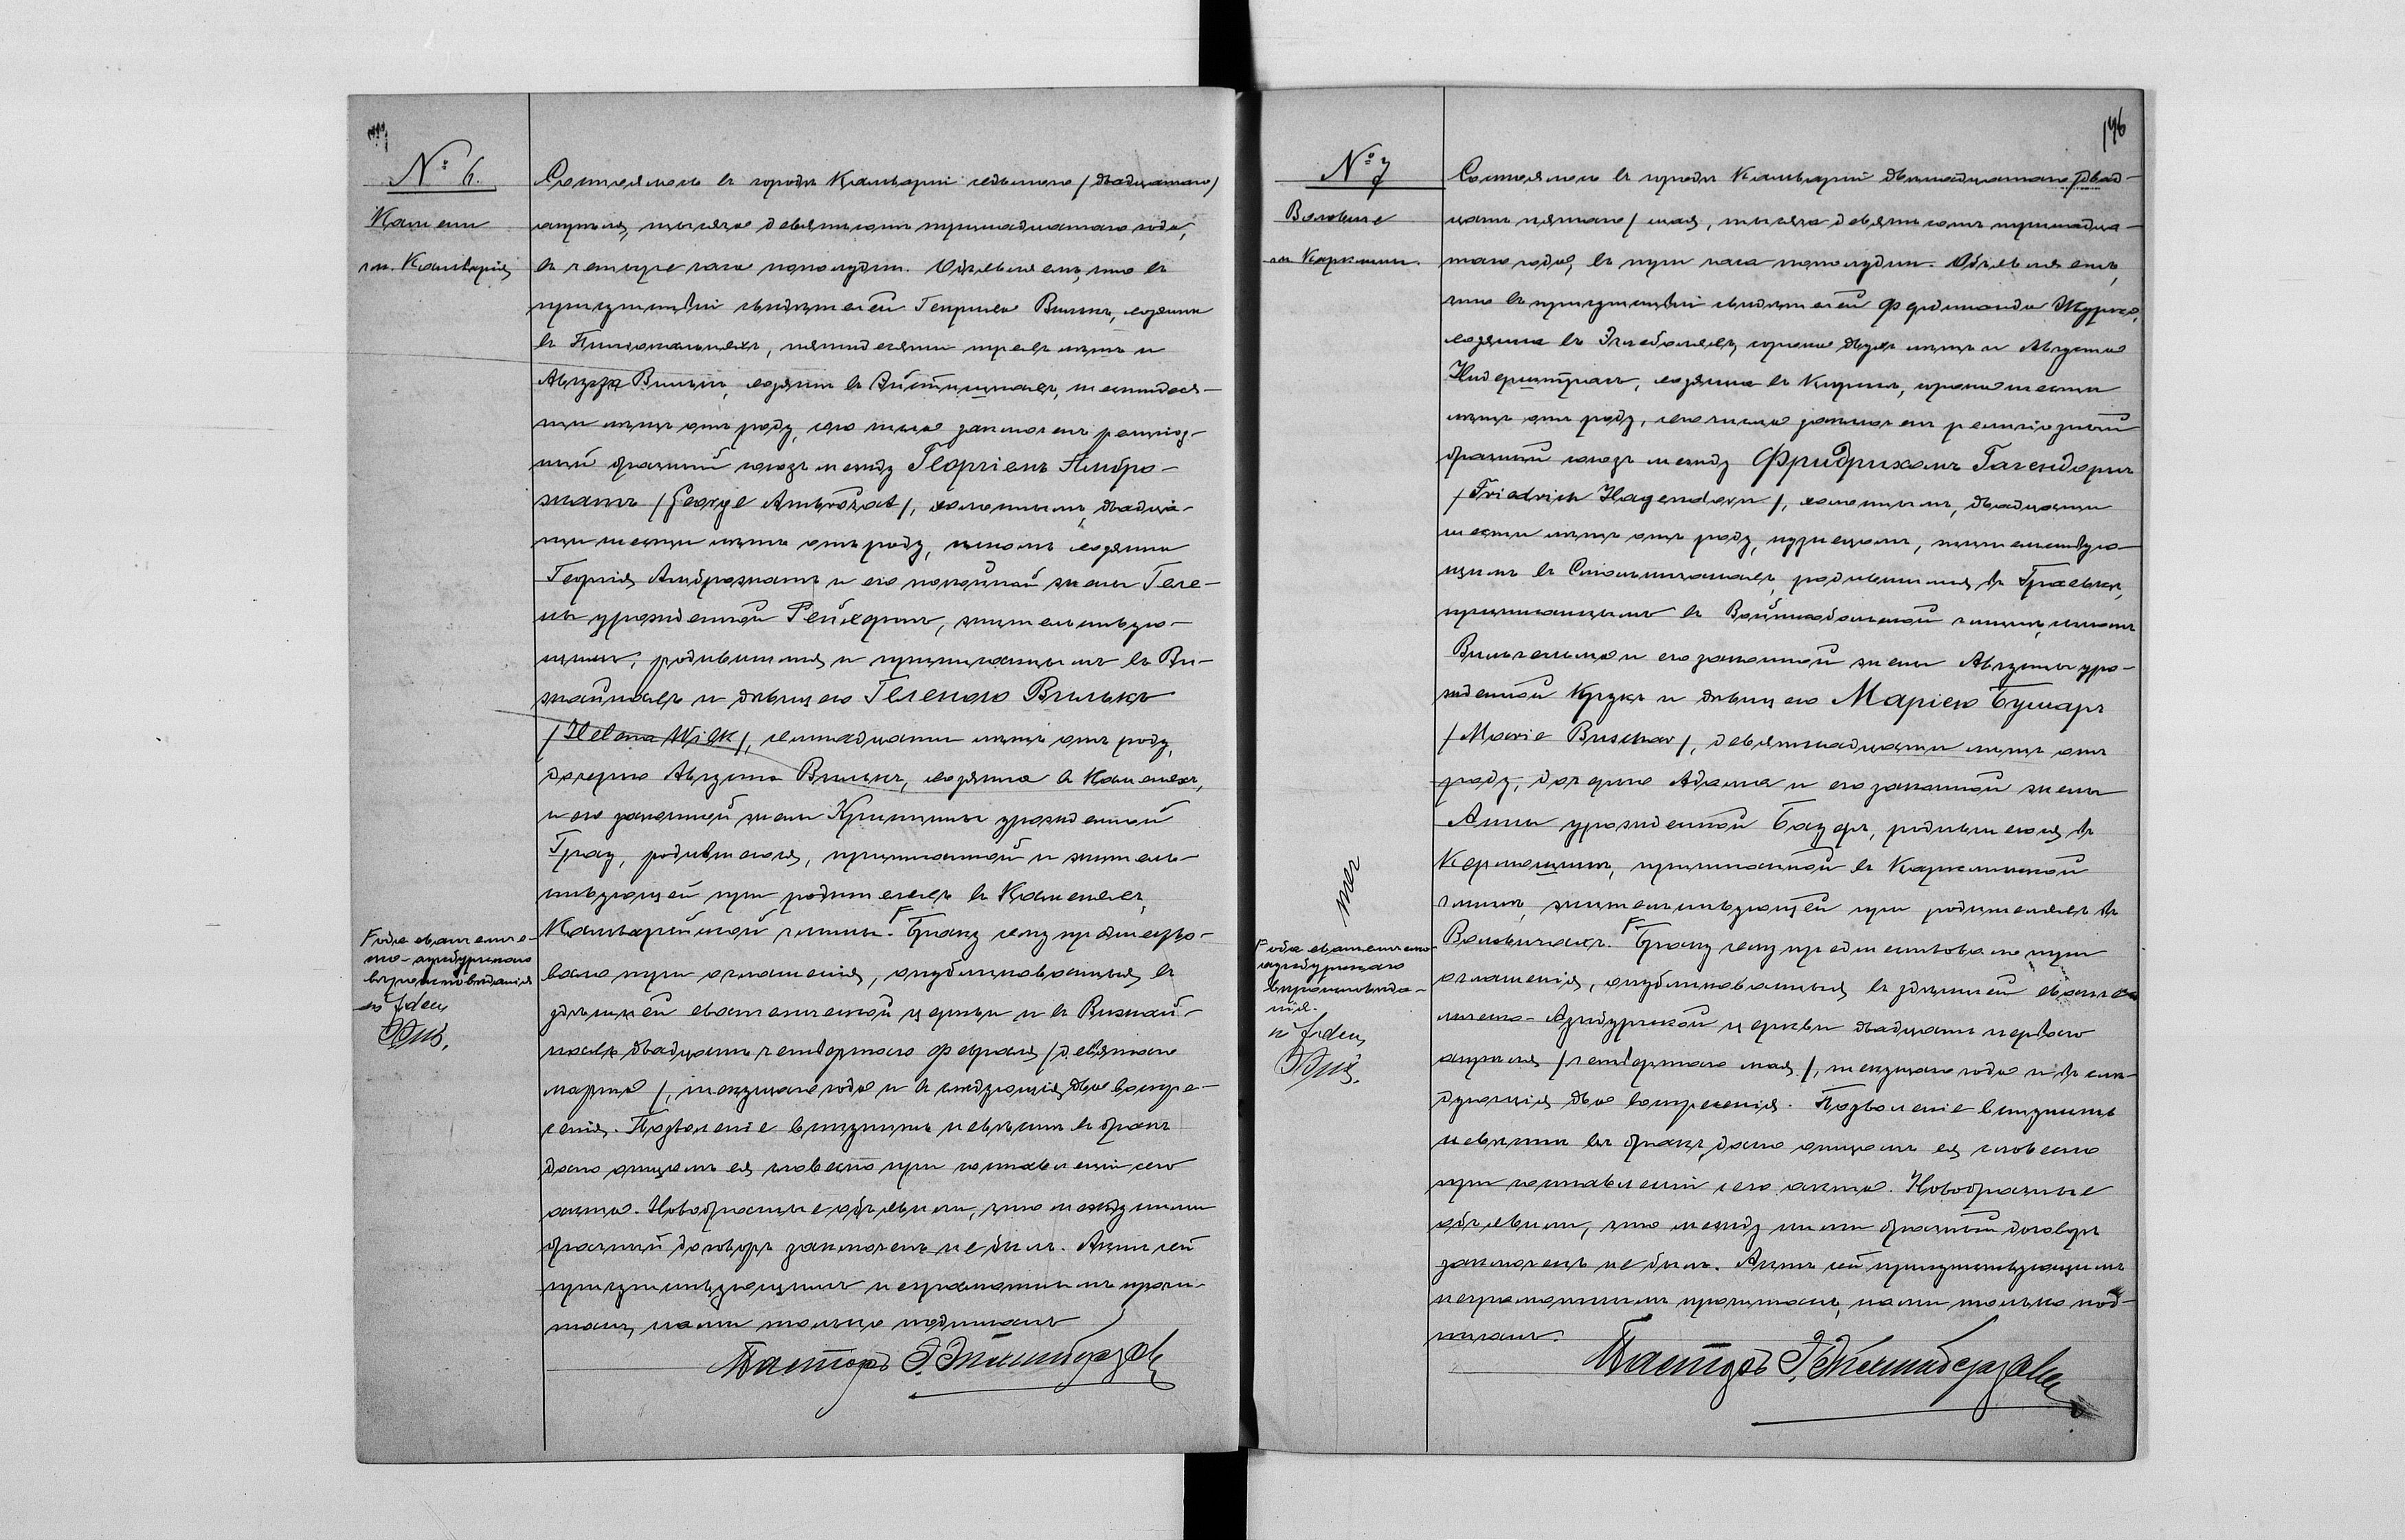 № 6.
Камени
гм. Кальварія
Состоялось въ городѣ Кальваріи седьмого /двадцатаго/
апрѣля, тысяча девятьсотъ тринадцатаго года,
въ четыре часа пополудни. Объявляемъ, что въ
присутствіи свидѣтелей Генриха Вилькъ, хозяина
въ, пятидесяти трехъ лѣтъ и
Августа Вилькъ, хозяина въ, шестидеся-
ти лѣтъ отъ роду, сего числа заключенъ религіоз-
ный брачный союзъ между Георгіемъ Амбро-
затъ /George Ambrosat/, холостымъ, двадца-
ти шести лѣтъ отъ роду, сыномъ хозяина
Георгія Амброзатъ и его покойной жены Геле-
ны урожденной, жительствую-
щимъ, родившимся и приписаннымъ въ Ви-
жайнахъ и дѣвицею Геленою Вилькъ
/Helena Wilk/, семнадцати лѣтъ отъ роду,
дочерью Августа Вилькъ, хозяина въ Каменяхъ,
и его законной жены Кристины урожденной
Грау, родившеюся, приписанной и житель-
ствующей при родителяхъ въ Каменяхъ,
Кальварійской гмины. F Браку сему предшество-
вало три оглашенія, опубликованныя въ
здѣшней евангелической церкви и въ Вижай-
нахъ двадцать четвертаго февраля /девятаго
марта/, текущаго года и въ слѣдующія два воскре-
сенія. Позволеніе вступить невѣстѣ въ бракъ
дано отцомъ ея словесно при составленіи сего
акта. Новобрачные объявили, что между ними
брачный договоръ заключенъ не былъ. Актъ сей
присутствующимъ неграмотнымъ прочи-
танъ, нами только подписанъ
Пасторъ
F оба евангеличе-
ско-аугсбургскаго
вѣроисповѣданія
196
№ 7
Воловиче
гм. Каркліны.
Состоялось въ городѣ Кальваріи двѣнадцатаго /двад-
цать пятаго/ мая, тысяча девятьсотъ тринадца-
таго года, въ три часа пополудни. Объявляемъ,
что въ присутствіи свидѣтелей Фердинанда,
хозяина въ, сорока двухъ лѣтъ и Августа
, хозяина въ, сорока шести
лѣтъ отъ роду, сего числа заключенъ религіозный
брачный союзъ между Фридрихомъ Гагендорнъ
/Friedrich Hagendorn/, холостымъ, двадцати
шести лѣтъ отъ роду, кузнецомъ, жительствую-
щимъ въ, родившимся въ Граевѣ,
приписаннымъ въ Войткобольской гминѣ, сыномъ
Вильгельма и его законной жены Августы уро-
жденной Крукъ и дѣвицею Маріею Бушаръ
/Marie Buschar/, девятнадцати лѣтъ отъ
роду, дочерью Адама и его законной жены
Анны урожденной Бауеръ, родившеюся въ
, приписанной въ Карклинской
гминѣ, жительствующей при родителяхъ въ
Воловичахъ. F Браку сему предшествовало три
оглашенія, опубликованныя въ здѣшней еванге-
лическо-Аугсбургской церкви двадцать перваго
апрѣля /четвертаго мая/, текущаго года и въ слѣ-
дующія два воскресенія. Позволеніе вступить
невѣстѣ въ бракъ, дано отцомъ ея словесно
при составленіи сего акта. Новобрачные
объявили, что между ними брачный договоръ
заключенъ не былъ. Актъ сей присутствующимъ
неграмотнымъ прочитанъ, нами только под-
писанъ.
Пасторъ
F оба евангелическо-
аугсбургскаго
вѣроисповѣда-
нія.